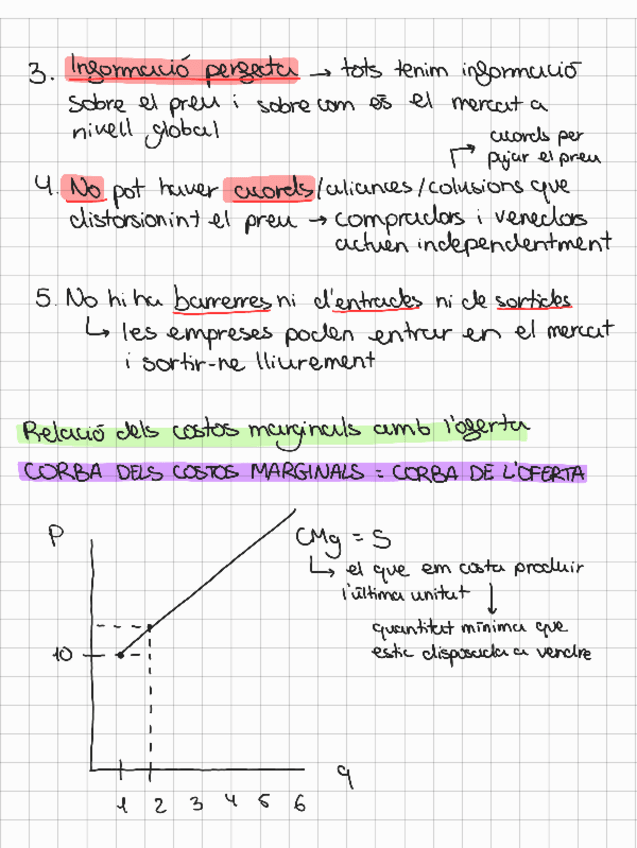 3. Informació perfecta → tots tenim informació
sobre el preu i sobre com és el mercat a
nivell global
acords per
pujar el preu
4. No pot haver acords/aliances/colusions que
distorsionint el preu → compradors i venedors
actuen independentment
5. No hi ha barrerres ni d'entrades ni de sortides
↳ les empreses poden entrar en el mercat
i sortir-ne lliurement
Relació dels costos marginals amb l'oferta
CORBA DELS COSTOS MARGINALS = CORBA DE L'OFERTA
P
CMg = S
↳ el que em costa produir
l'última unitat
quantitat mínima que
estic disposada a vendre
10
q
1 2 3 4 5 6